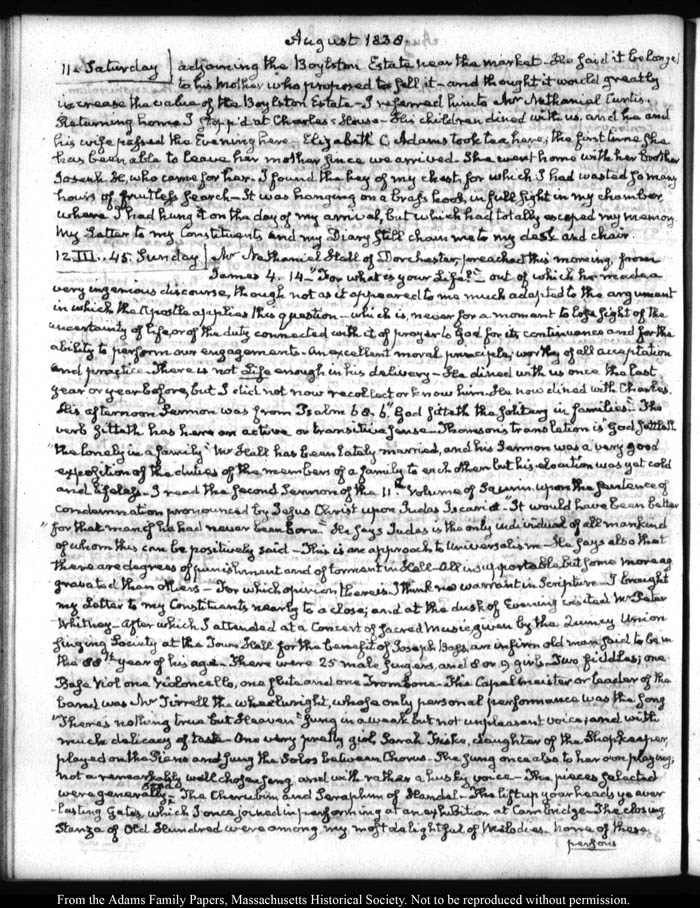 August 1838.
11. Saturday adjoining the Boylston Estate near the market. He said it belonged
to his Mother who proposed to sell it - and thought it would greatly
increase the value of the Boylston Estate - I referred him to Mr Nathanial Curtis.
Returning home I stopp'd at Charles's House. His children dined with us, and he and
his wife passed the Evening here - Elizabeth C. Adams took tea here; the first time she
has been able to leave her mother since we arrived. She went home with her brother
Joseph H, who came for her. I found the key of my chest, for which I had wasted so many
hours of fruitless search - It was hanging on a brass hook, in full sight in my chamber
where I had hung it on the day of my arrival, but which had totally escaped my memory
My Letter to my Constituents and my Diary still chain me to my desk and chair.
12. III.. 45. Sunday Mr Nathaniel Hall of Dorchester, preached this morning, from
James 4. 14. "For what is your Life?" out of which he made a
very ingenious discourse, though not as it appeared to me much adapted to the argument
in which the Apostle applies this question - which is, never for a moment to lose sight of the
uncertainty of life, or of the duty connected with it of prayer to God for its continuance and for the
ability to perform our engagements - An excellent moral principle, worthy of all acceptation
and practice - There is not Life enough in his delivery - He dined with us once the last
year or year before, but I did not now recollect or know him. He now dined with Charles.
His afternoon Sermon was from Psalm 68. 6. God setteth the solitary in families." The
verb setteth has here an active or transitive sense - Thomson's translation is God settleth
"the lonely in a family" Mr Hall has been lately married, and his Sermon was a very good
exposition of the duties of the members of a family to each other but his elocution was yet cold
and lifeless - I read the second Sermon of the 11th Volume of Saurin upon the sentence of
condemnation pronounced by Jesus Christ upon Judas Iscariot "It would have been better
"for that man if he had never been born" He says Judas is the only individual of all mankind
of whom this can be positively said - This is an approach to Universalism - He says also that
there are degrees of punishment and of torment in Hell - All insupportable but some more ag
gravated than others - For which opinion there is I think no warrant in Scripture - I brought
my Letter to my Constituents nearly to a close; and at the dusk of Evening visited Mr Peter
Whitney - after which I attended at a Concert of Sacred Music given by the Quincy Union
singing Society at the Town Hall for the benefit of Joseph Bass, an infirm old man said to be in
the 88th year of his age. There were 25 male singers, and 8 or 9 girls - Two fiddles; one
Bass Viol one Violoncello, one flute and one Trombone. The Capelmeister or leader of the
band was Mr Tirrell the wheelwright, whose only personal performance was the song
"There's nothing true but Heaven" sung in a weak but not unpleasant voice; and with
much delicacy of taste - One very pretty girl, Sarah Fiske, daughter of the Shopkeeper,
played on the Piano and sung the Solos between Chorus - She sung once also to her own playing;
not a remarkably well chosen song and with rather a husky voice - The pieces selected
were generally good - The Cherubim and Seraphim of Handel - The lift up your heads ye ever
lasting Gates, which I once joined in performing at an exhibition at Cambridge - The closing
Stanza of Old Hundred were among my most delightful of Melodies. none of these
persons
From the Adams Family Papers, Massachusetts Historical Society. Not to be reproduced without permission.